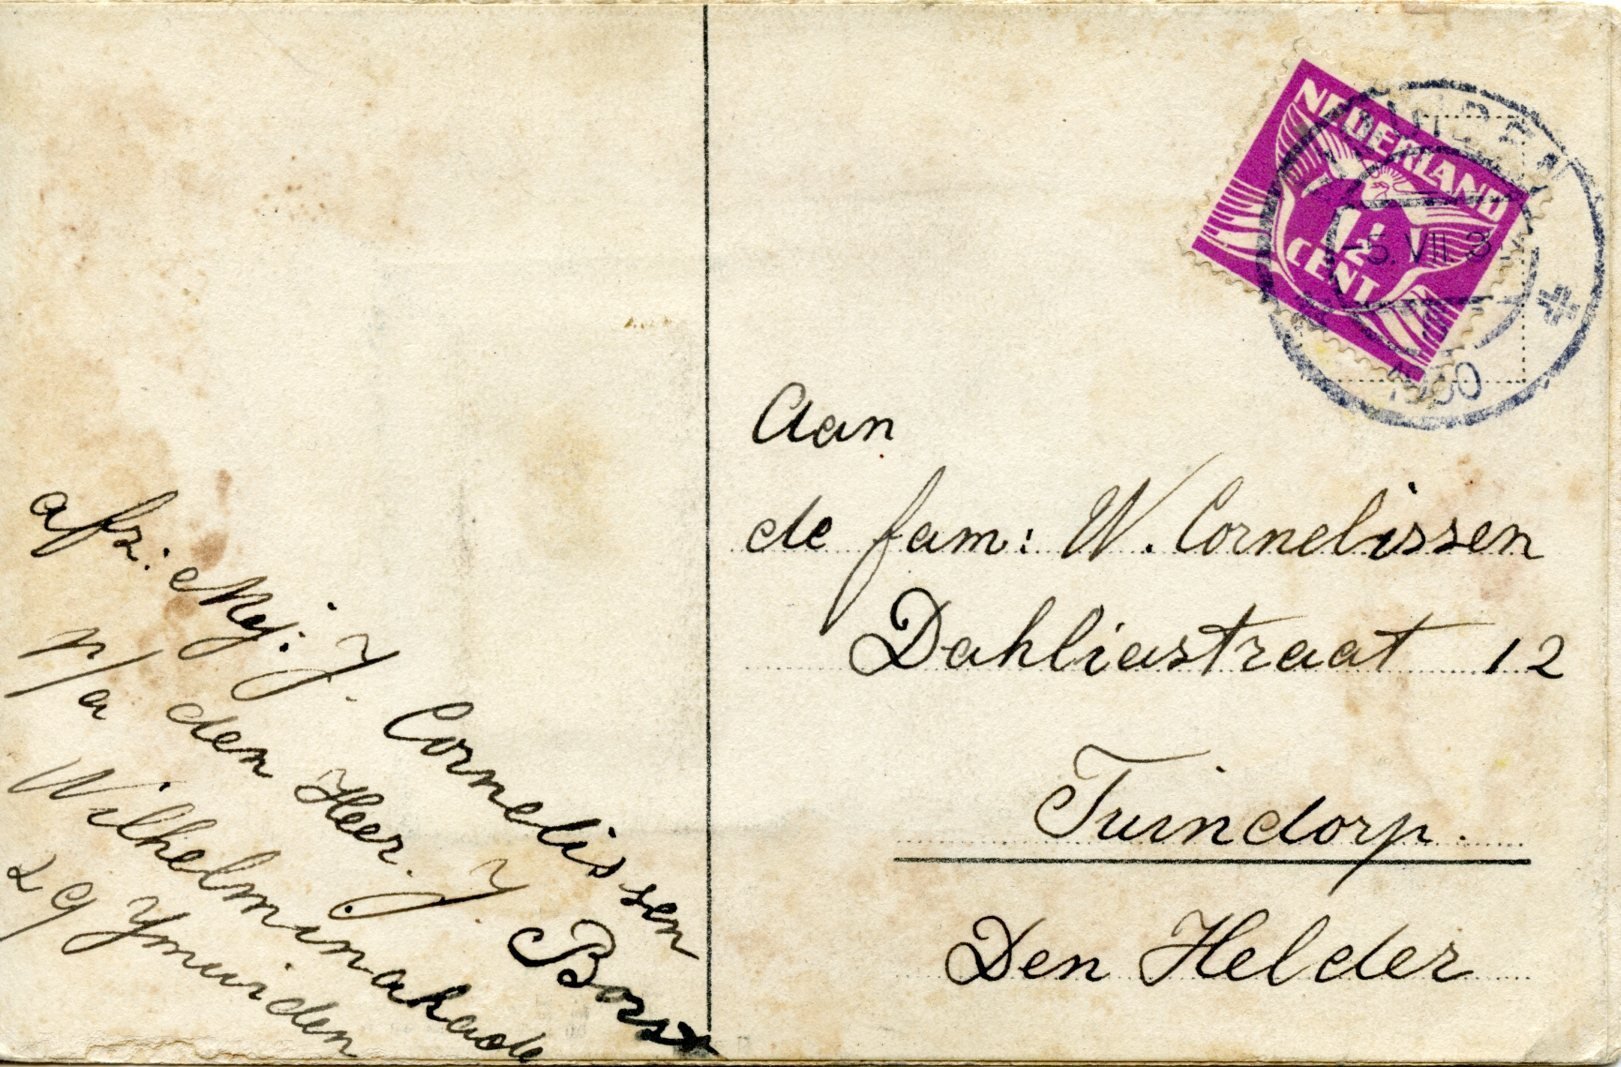 afz: Mej: J. Cornelissen
p/a den Heer. J.
Wilhelminakade
29 Ymuiden
NEDERLAND
1½
CENT
5. VII 3
Aan
de fam: W. Cornelissen
Dahliastraat 12
Tuindorp.
Den Helder